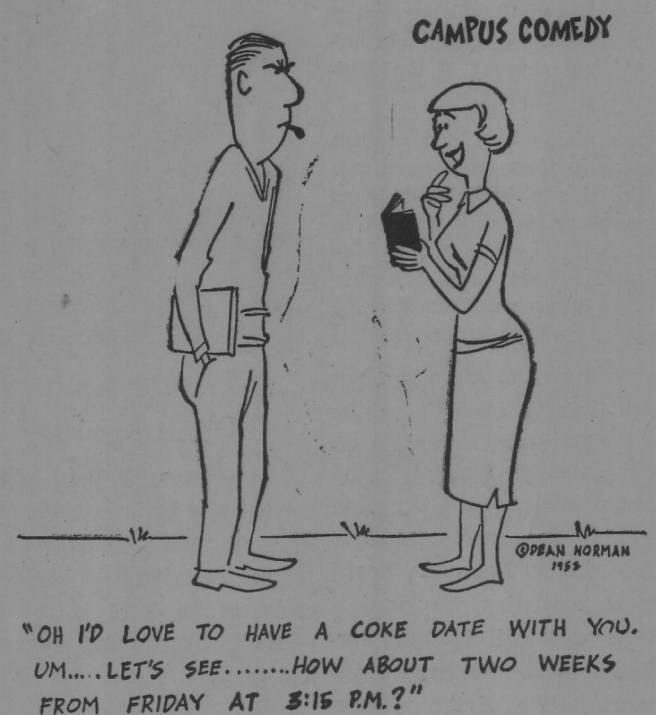 CAMPUS COMEDY
©DEAN NORMAN
"OH I'D LOVE TO HAVE A COKE DATE WITH YOU.
UM.....LET'S SEE........HOW ABOUT TWO WEEKS
FROM FRIDAY AT 3:15 P.M.?"